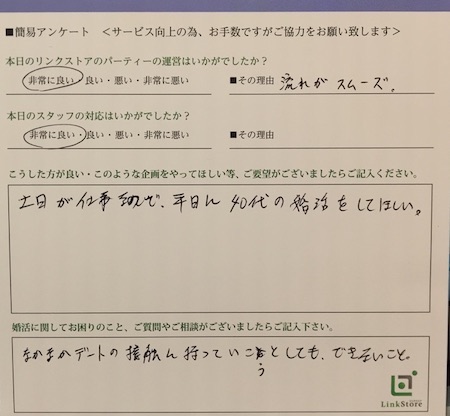 ■簡易アンケート ＜サービス向上の為、お手数ですがご協力をお願い致します＞
本日のリンクストアのパーティーの運営はいかがでしたか？
非常に良い・良い・悪い・非常に悪い ■その理由 流れがスムーズ。
本日のスタッフの対応はいかがでしたか？
非常に良い・良い・悪い・非常に悪い ■その理由
こうした方が良い・このような企画をやってほしい等、ご要望がございましたらご記入ください。
土日が仕事なので、平日に40代の婚活をしてほしい。
婚活に関してお困りのこと、ご質問やご相談がございましたらご記入下さい。
なかなかデートの接触に持っていこうとしても、できないこと。
LinkStore